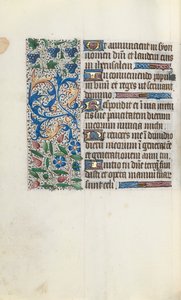 Ut annuncient in syon
nomen dni et laudem eius
in iherusalem
In conveniendo populos
in unum et reges ut serviant
domino
Respondit ei in via virtu
tis sue paucitatem dierum
meorum nuncia michi
Ne revoces me in dimidio
dierum meorum in generacõe
et generationem anni tui
Initio tu dñe terrã fun
dasti et opera manuũ tuar
sunt celi